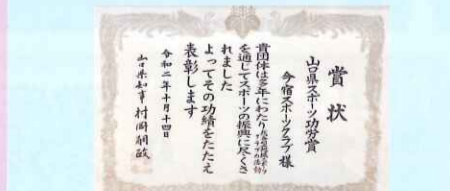 賞状
山口県スポーツ功労賞
今宿スポーツクラブ 様
貴団体は多年にわたり
クラブの活動
を通じてスポーツの振興に尽くさ
れました
よってその功績をたたえ
表彰します
令和二年十月十四日
山口県知事 村岡嗣政